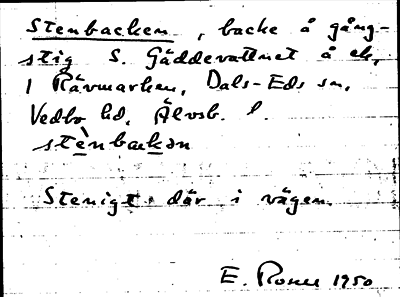 Stenbacken, backe å gång-
stig S. Gäddevattnet å ek,
1 Rävmarken, Dals-Eds sn,
Vedbo hd, Älvsb. l.
stènbackən
Stenigt där i vägen.
E. 1950